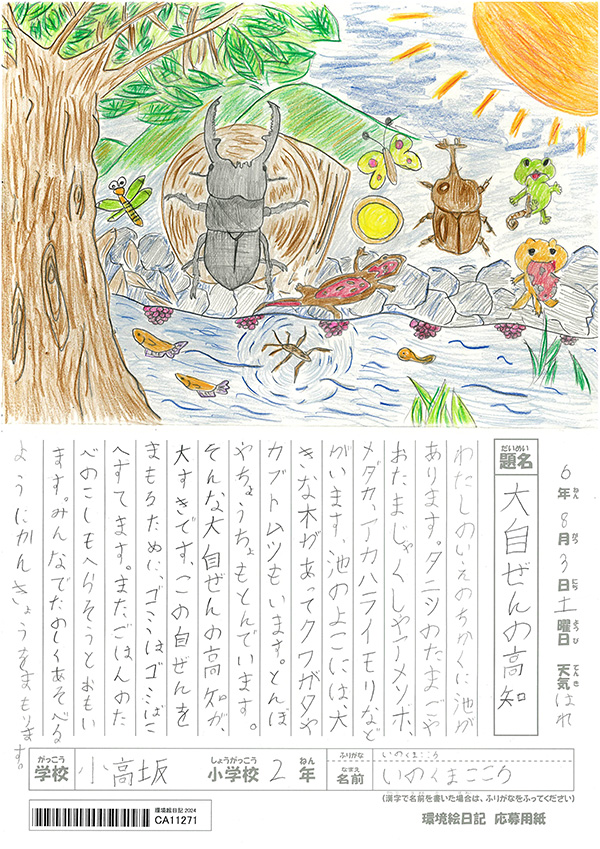 6年8月3日土曜日 天気はれ
ねん がつ にち ようび てんき
だいめい
題名 大自ぜんの高知
わたしのいえのちかくに池が
あります。タニシのたまごや
おたまじゃくしやアメンボ、
メダカ、アカハライモリなど
がいます。池のよこには、大
きな木があってクワガタや
カブトムツもいます。とんぼ
やちょうちょもとんでいます。
そんな大自ぜんの高知が、
大すきです。この自ぜんを
まもるために、ゴミはゴミばこ
へすてます。またごはんのた
べのこしもへらそうとおもい
ます。みんなでたのしくあそべる
ようにかんきょうをまもります。
がっこう しょうがっこう ねん
学校 小高坂 小学校 2年
ふりがな いのくまこころ
なまえ
名前 いのくまこころ
(漢字で名前を書いた場合は、ふりがなをふってください)
環境絵日記 2024
CA11271
環境絵日記 応募用紙